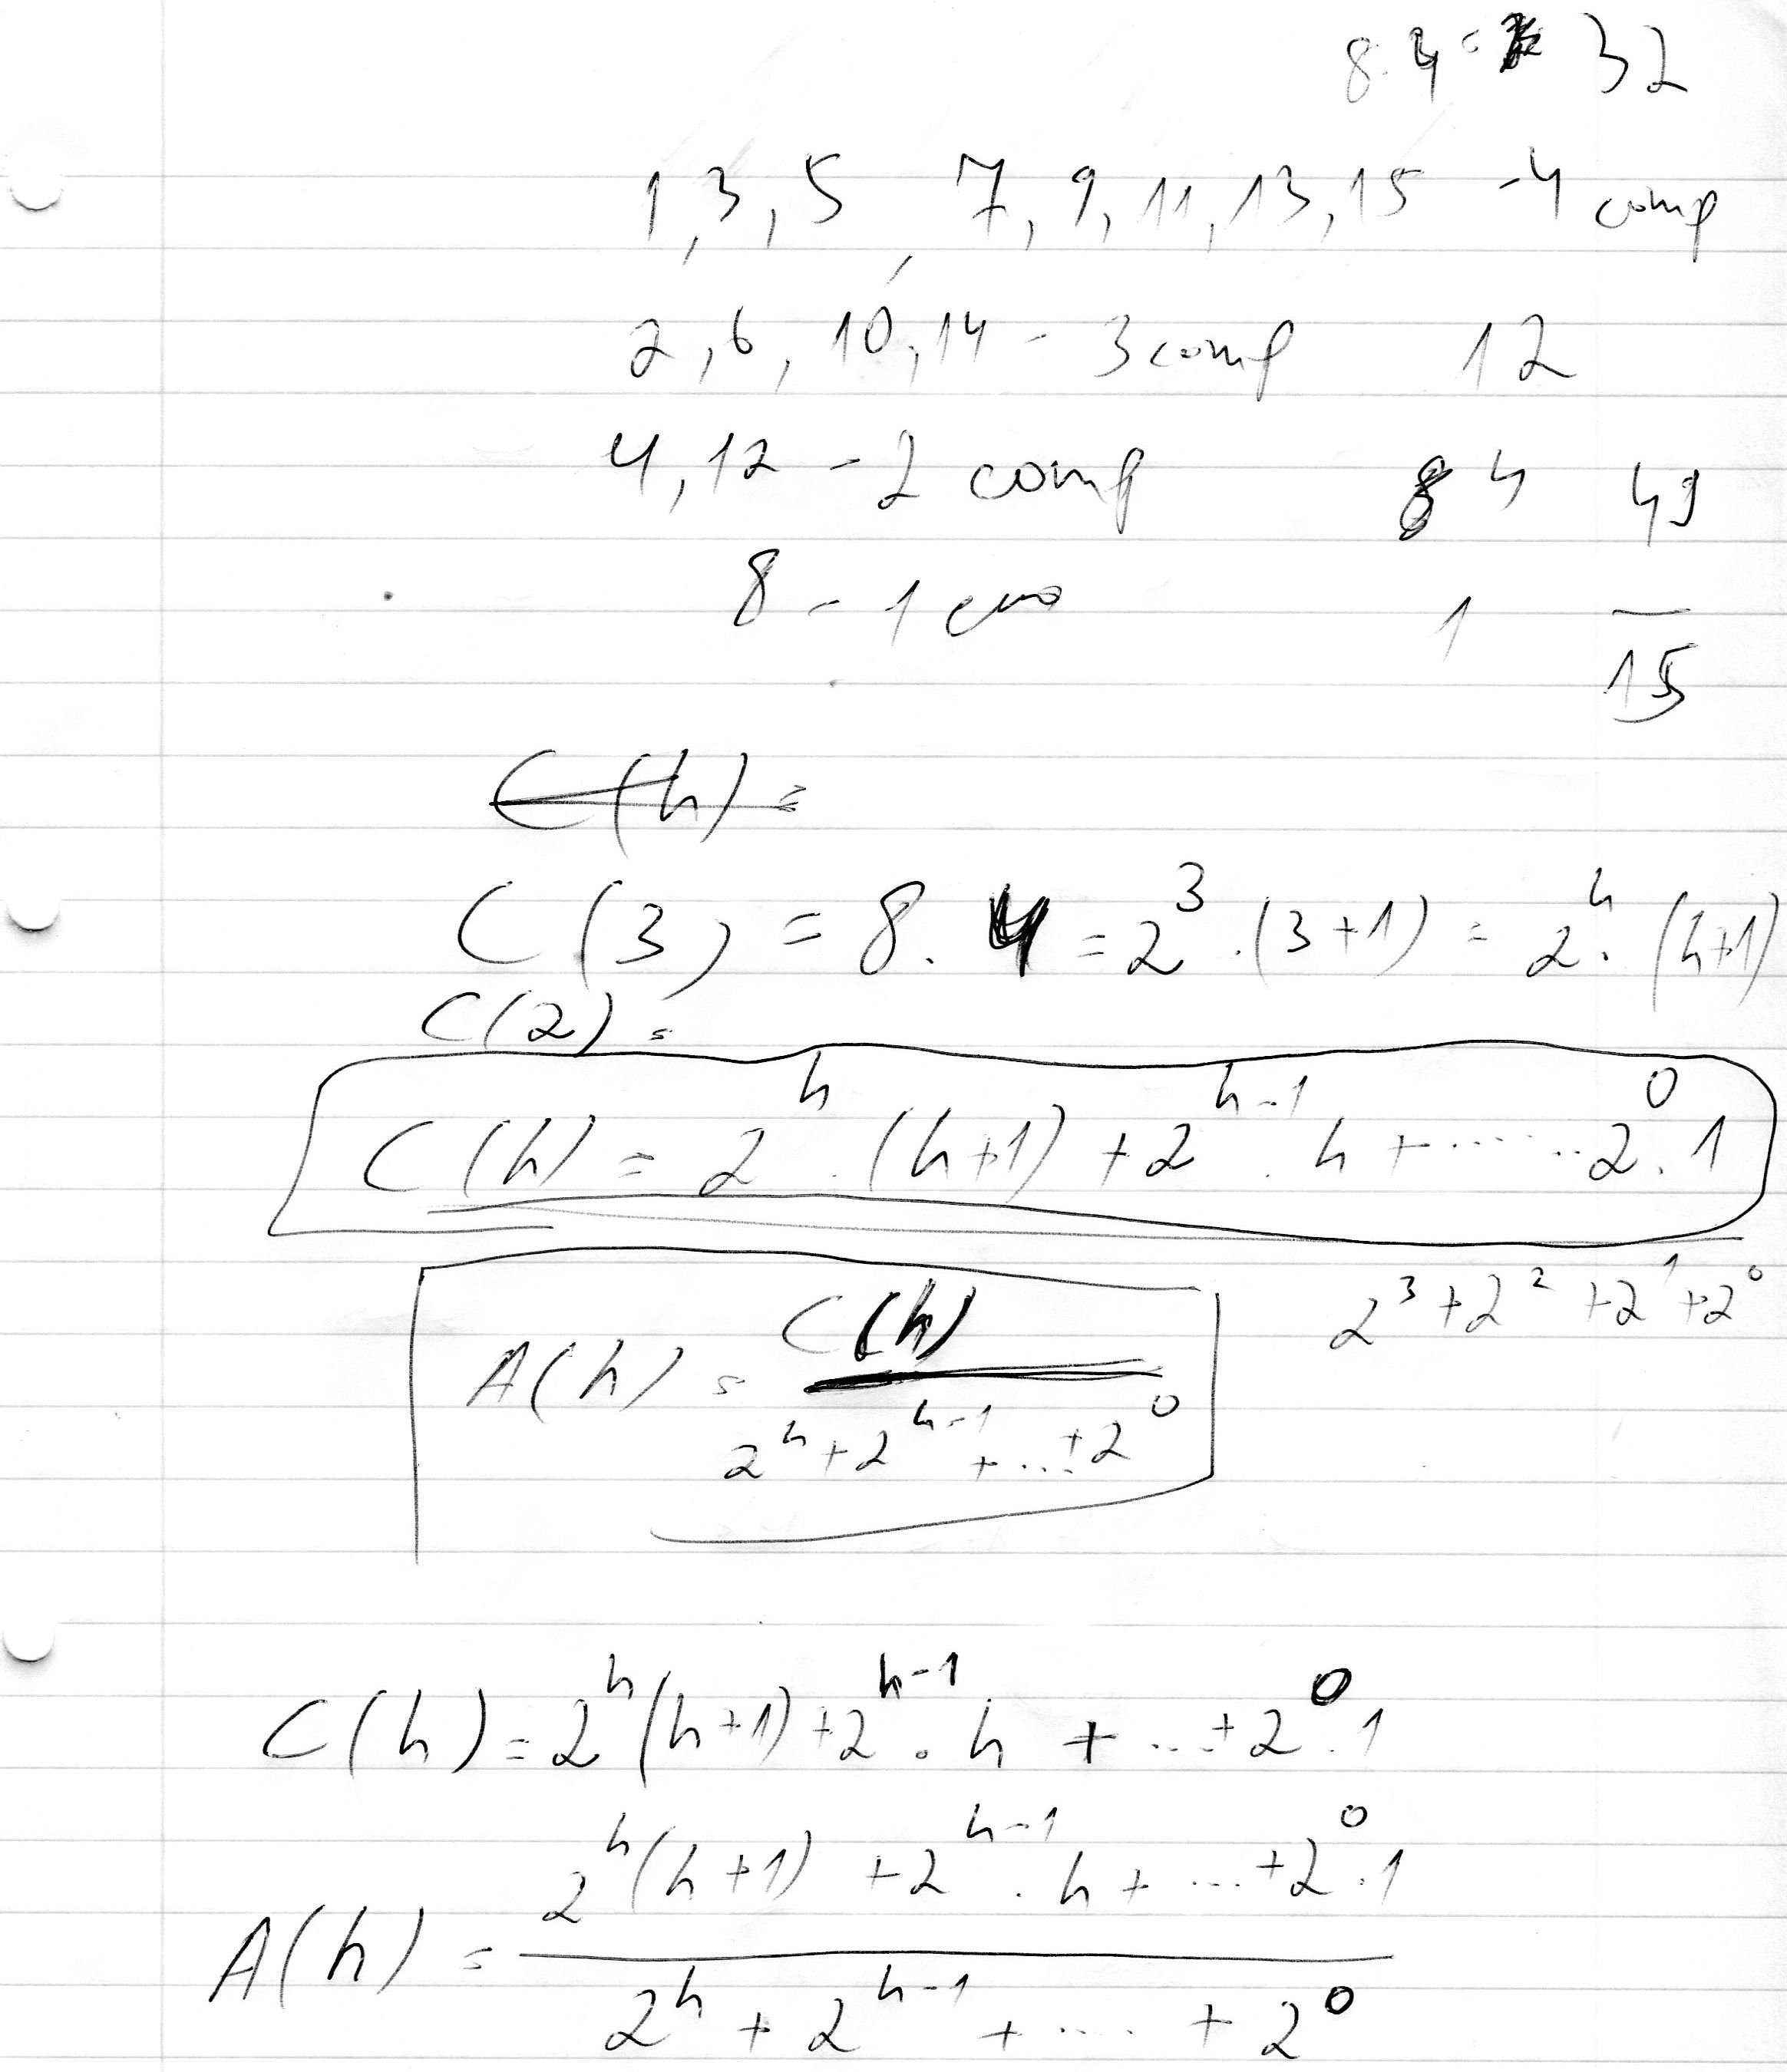 8.4 = 32
1, 3, 5, 7, 9, 11, 13, 15 - 4 comp
2, 6, 10, 14 - 3 comp 12
4, 12 - 2 comp 4 49
8 - 1 1
15
C(h) =
C(3) = 8. 4 = 2^3 .(3+1) = 2^h . (h+1)
C(2) =
C(h) = 2^h . (h+1) + 2^{h-1} . h + ........ 2^0 . 1
2^3 + 2^2 + 2^1 + 2^0
A(h) = C(h) / 2^h + 2^{h-1} + ... + 2^0
C(h) = 2^h (h+1) + 2^{h-1} . h + ... + 2^0 . 1
A(h) = 2^h (h+1) + 2^{h-1} . h + ... + 2^0 . 1 / 2^h + 2^{h-1} + .... + 2^0